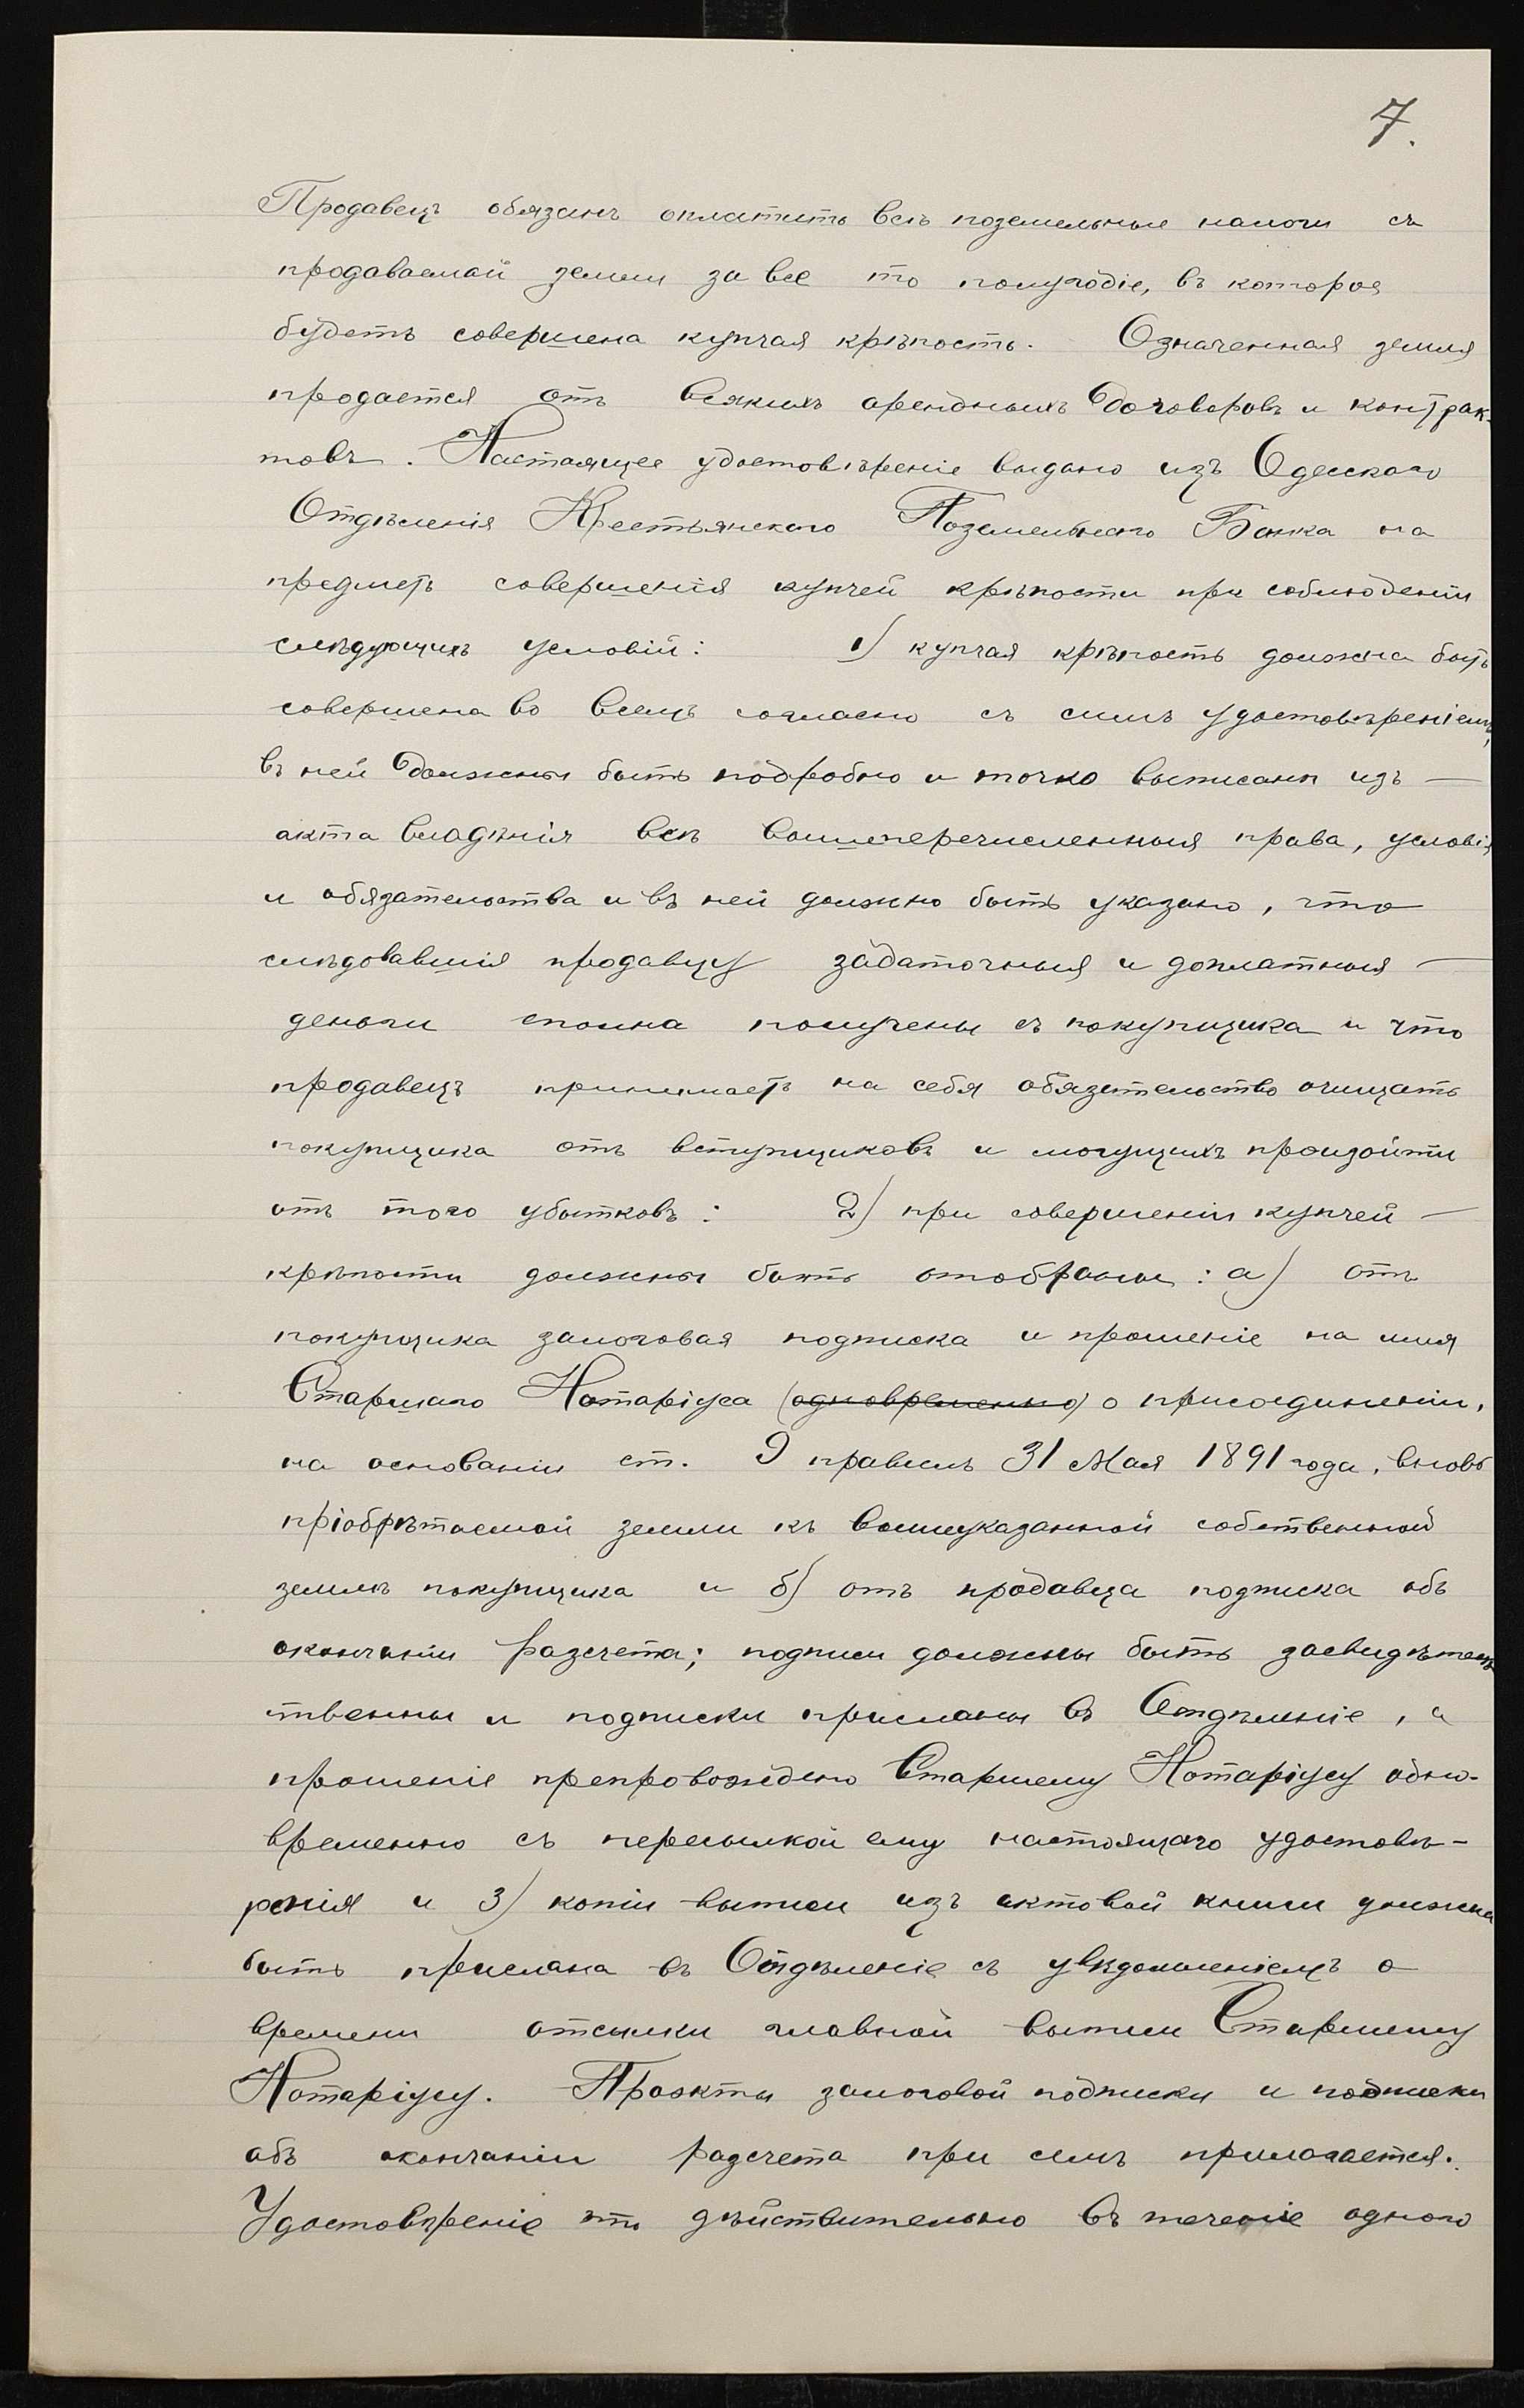 7.
Продавецъ обязанъ оплатить всѣ поземельные налоги съ
продаваемой земли за все то полугодіе, въ которое
будетъ совершена купчая крѣпость. Означенная земля
продается отъ всякихъ арендныхъ договоровъ и контрак-
товъ. Настоящее удостовѣреніе выдано изъ Одесскаго
Отдѣленія Крестьянскаго Поземельнаго Банка на
предметъ совершенія купчей крѣпости при соблюденіи
слѣдующихъ условій: 1) купчая крѣпость должна быть
совершена во всемъ согласно съ симъ удостовѣреніемъ,
въ ней должны быть подробно и точно выписаны изъ —
акта владѣнія всѣ вышеперечисленныя права, условія
и обязательства и въ ней должно быть указано, что
слѣдовавшія продавцу задаточныя и доплатныя —
деньги сполна получены съ покупщика и что
продавецъ принимаетъ на себя обязательство очищать
покупщика отъ вступщиковъ и могущихъ произойти
отъ того убытковъ: 2) при совершеніи купчей —
крѣпости должны быть отобраны: а) отъ
покупщика залоговая подписка и прошеніе на имя
Старшаго Нотаріуса (одновременно) о присоединеніи,
на основаніи ст. 9 правилъ 31 Мая 1891 года, вновь
пріобрѣтаемой земли къ вышеуказанной собственной
землѣ покупщика и б) отъ продавца подписка объ
окончаніи разсчета; подписи должны быть засвидѣтель
ствены и подписки присланы въ Отдѣленіе, а
прошеніе препровождено Старшему Нотаріусу одно-
временно съ пересылкой ему настоящаго удостовѣ-
ренія и 3) копіи выписи изъ актовой книги должна
быть прислана въ Отдѣленіе съ увѣдомленіемъ о
времени отсылки главной выписи Старшему
Нотаріусу. Проэкты залоговой подписки и подписки
объ окончаніи разсчета при семъ прилагается.
Удостовѣреніе это дѣйствительно въ теченіе одного